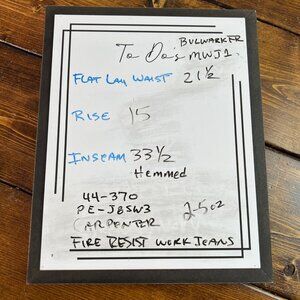 BULWARK FR
To Do's MWJ1.
FLAT LAY WAIST 21 1/2
RISE 15
INSEAM 33 1/2
Hemmed
44-370
PE-J8SW3
CARPENTER 2-5oz
FIRE RESIST WORK JEANS